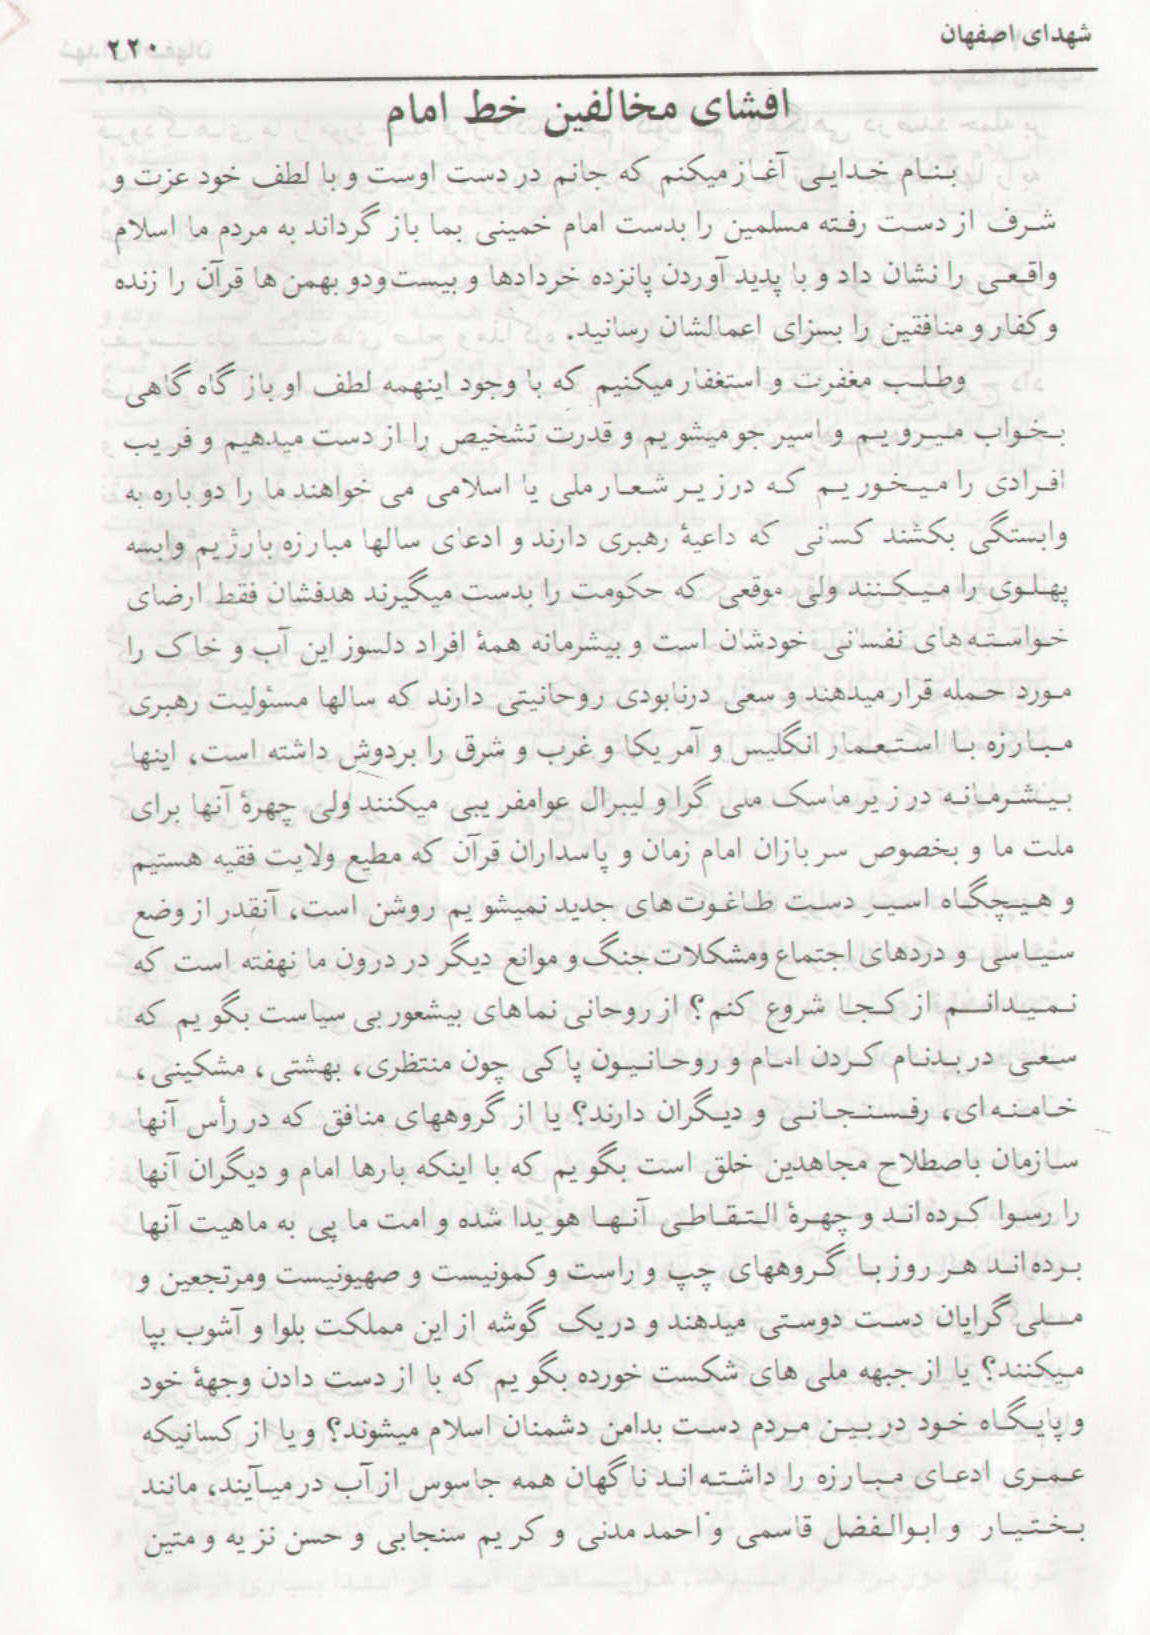 شهدای اصفهان
۲۲۰
افشای مخالفین خط امام
بنام خدایی آغاز میکنم که جانم در دست اوست و با لطف خود عزت و
شرف از دست رفته مسلمین را بدست امام خمینی بما باز گرداند به مردم ما اسلام
واقعی را نشان داد و با پدید آوردن پانزده خردادها و بیست ودو بهمن ها قرآن را زنده
و کفار و منافقین را بسزای اعمالشان رسانید.
وطلب مغفرت و استغفار میکنیم که با وجود اینهمه لطف او باز گاه گاهی
بخواب میرویم و اسیر جو میشویم و قدرت تشخیص را از دست میدهیم و فریب
افرادی را میخوریم که در زیر شعار ملی یا اسلامی می خواهند ما را دوباره به
وابستگی بکشند کسانی که داعیهٔ رهبری دارند و ادعای سالها مبارزه با رژیم وابسه
پهلوی را میکنند ولی موقعی که حکومت را بدست میگیرند هدفشان فقط ارضای
خواسته های نفسانی خودشان است و بیشرمانه همهٔ افراد دلسوز این آب و خاک را
مورد حمله قرار میدهند و سعی درنابودی روحانیتی دارند که سالها مسئولیت رهبری
مبارزه با استعمار انگلیس و آمریکا و غرب و شرق را بردوش داشته است، اینها
بیشرمانه در زیر ماسک ملی گرا و لیبرال عوامفریبی میکنند ولی چهرهٔ آنها برای
ملت ما و بخصوص سربازان امام زمان و پاسداران قرآن که مطیع ولایت فقیه هستیم
و هیچگاه اسیر دست طاغوت های جدید نمیشویم روشن است، آنقدر از وضع
سیاسی و دردهای اجتماع ومشکلات جنگ و موانع دیگر در درون ما نهفته است که
نمیدانم از کجا شروع کنم؟ از روحانی نماهای بیشعور بی سیاست بگویم که
سعی در بدنام کردن امام و روحانیون پاکی چون منتظری، بهشتی، مشکینی،
خامنه ای، رفسنجانی و دیگران دارند؟ یا از گروههای منافق که در رأس آنها
سازمان باصطلاح مجاهدین خلق است بگویم که با اینکه بارها امام و دیگران آنها
را رسوا کرده اند و چهرهٔ التقاطی آنها هویدا شده و امت ما پی به ماهیت آنها
برده اند هر روز با گروههای چپ و راست و کمونیست و صهیونیست ومرتجعین و
ملی گرایان دست دوستی میدهند و در یک گوشه از این مملکت بلوا و آشوب بپا
میکنند؟ یا از جبهه ملی های شکست خورده بگویم که با از دست دادن وجههٔ خود
و پایگاه خود در بین مردم دست بدامن دشمنان اسلام میشوند؟ و یا از کسانیکه
عمری ادعای مبارزه را داشته اند ناگهان همه جاسوس از آب در میآیند، مانند
بختیار و ابوالفضل قاسمی و احمد مدنی و کریم سنجابی و حسن نزیه و متین